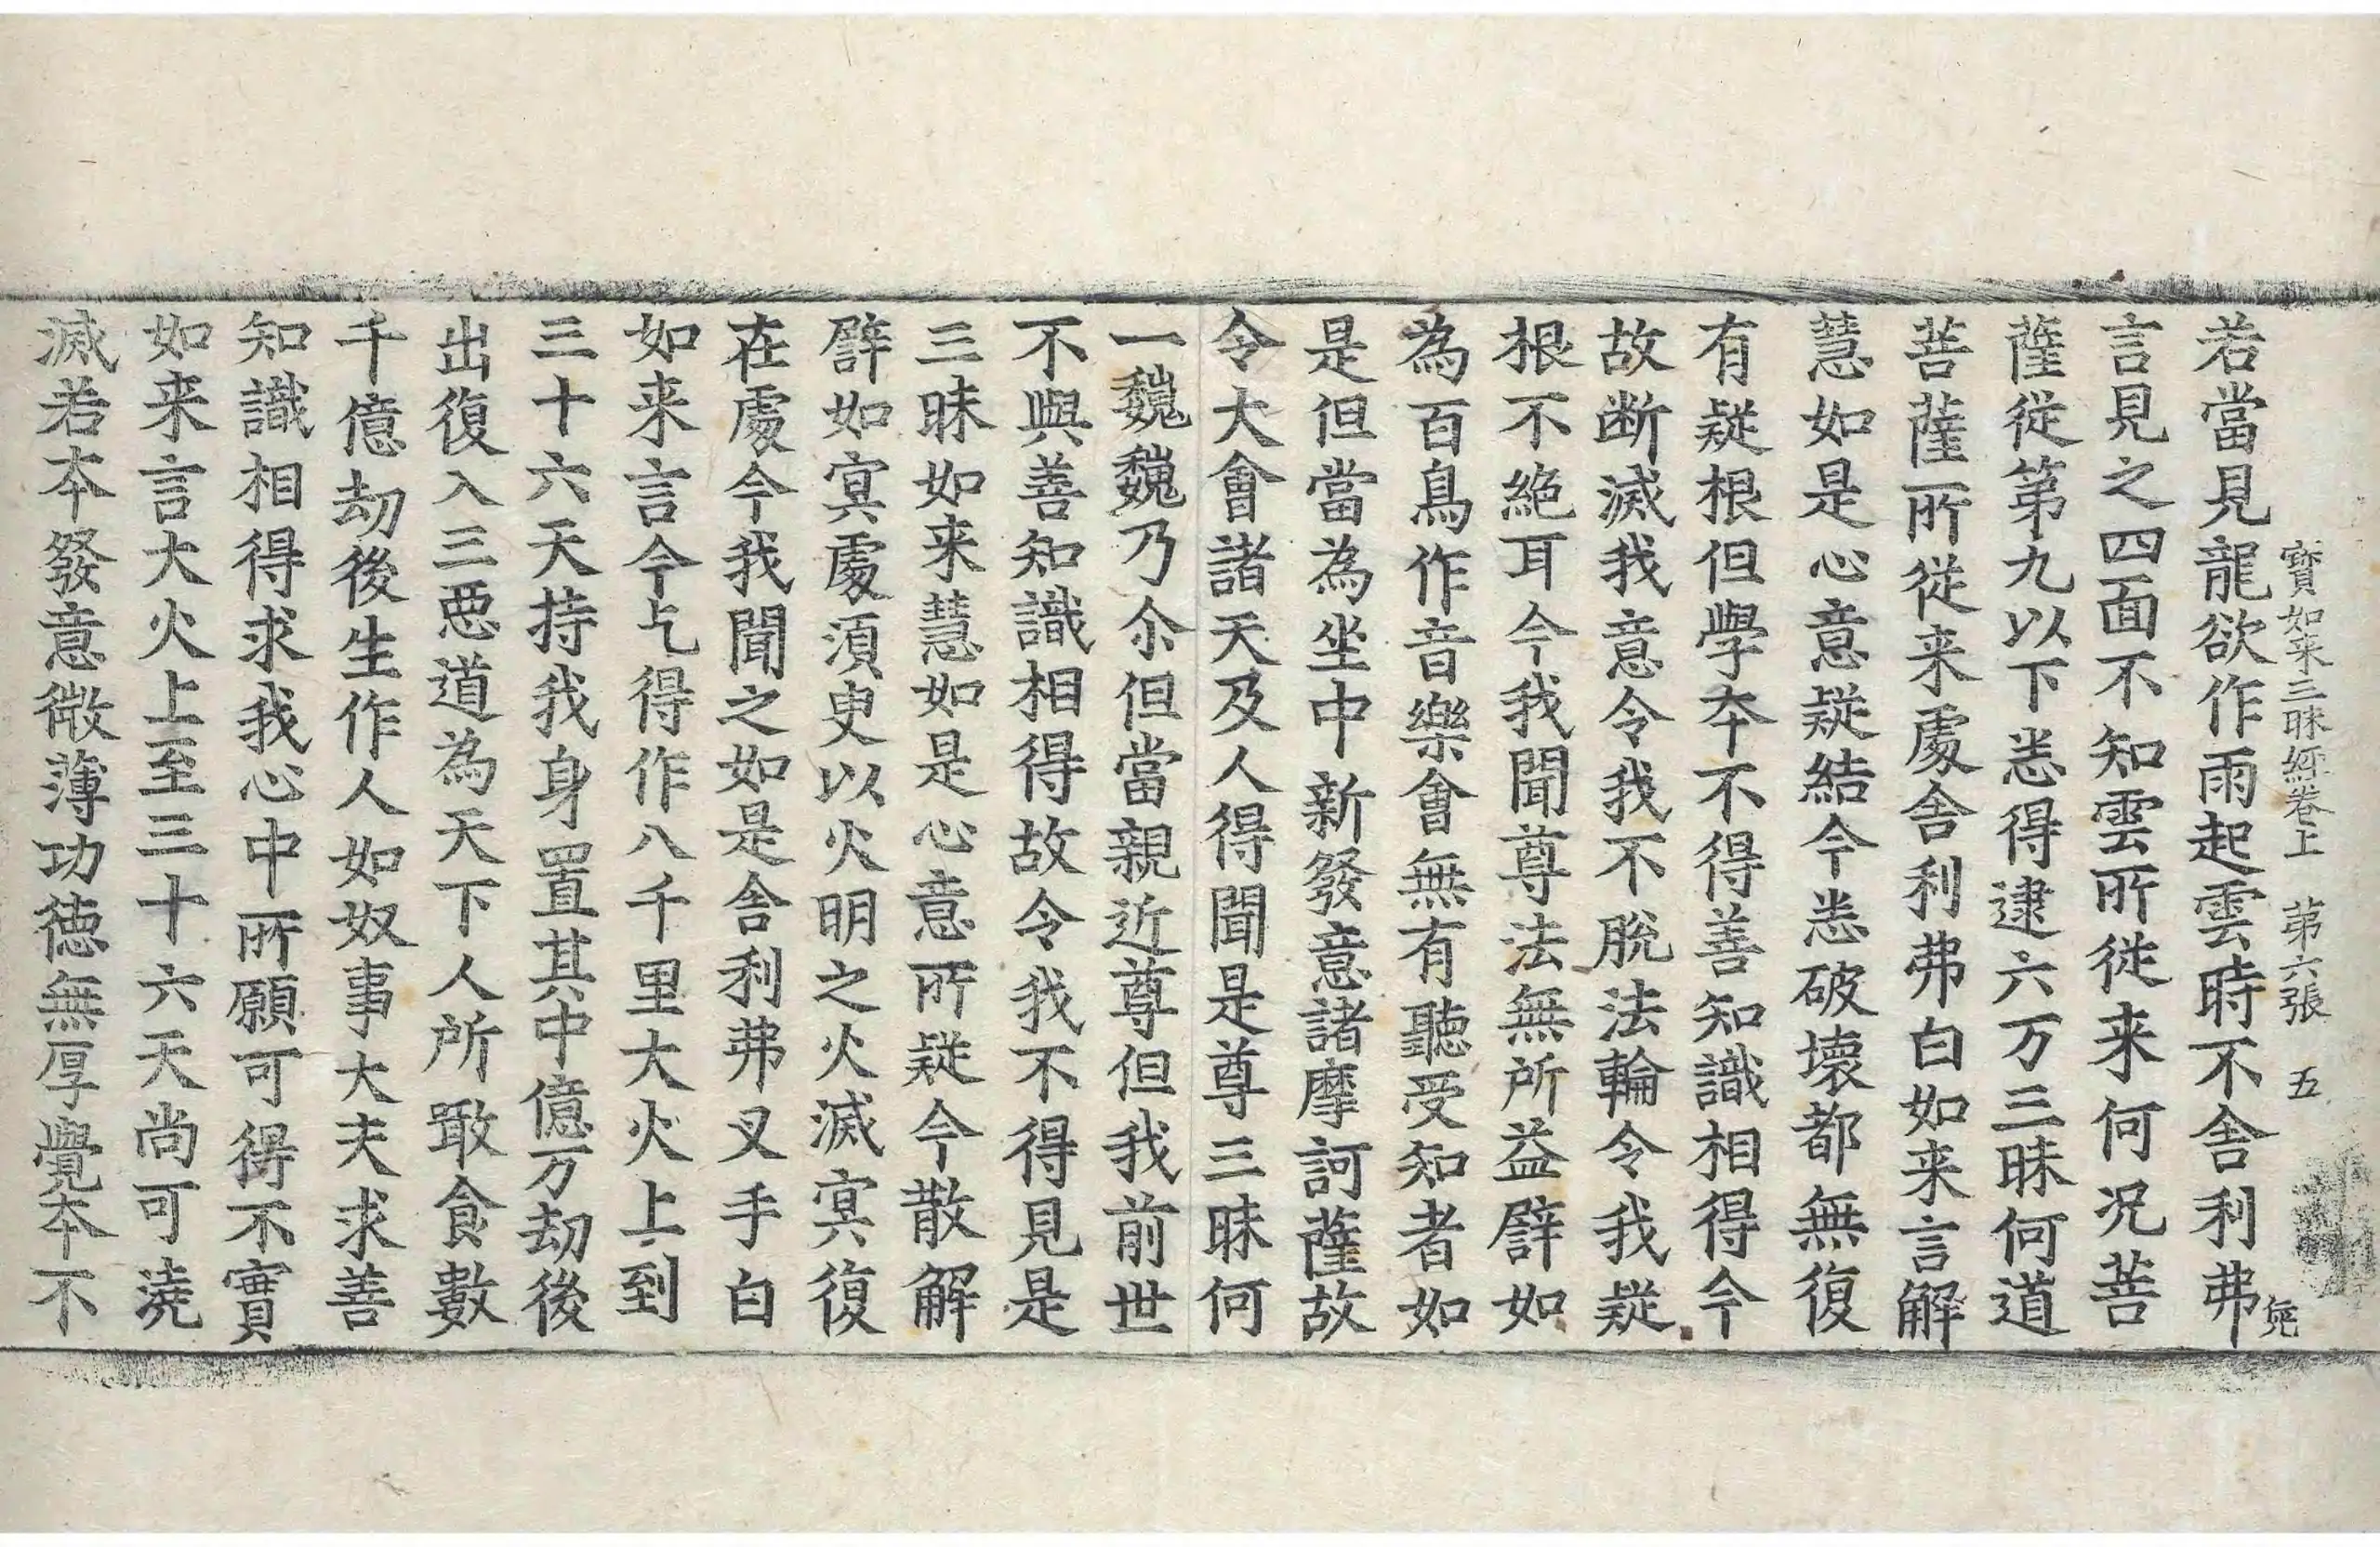 寳如来三昧経卷上　第六張　五
若當見龍欲作雨起雲時不舎利弗
言見之四面不知雲所従来何况菩
薩従第九以下悉得逮六万三昧何道
菩薩所従来處舎利弗白如来言解
慧如是心意疑結今悉破壊都無復
有疑根但學夲不得善知識相得今
故断滅我意令我不脫法輪令我疑
根不絶耳今我聞尊法無所益譬如
為百鳥作音樂會無有聽受知者如
是但當為坐中新發意諸摩訶薩故
令大會諸天及人得聞是尊三昧何
一巍巍乃尒但當親近尊但我前世
不與善知識相得故令我不得見是
三昧如来慧如是心意所疑今散解
譬如㝠處須臾以火明之火滅㝠復
在處今我聞之如是舎利弗叉手白
如来言今乞得作八千里大火上到
三十六天持我身置其中億万劫後
出復入三惡道為天下人所噉食數
千億劫後生作人如奴事大夫求善
知識相得求我心中所願可得不寳
如来言大火上至三十六天尚可澆
滅若夲發意微薄功徳無厚覺夲不